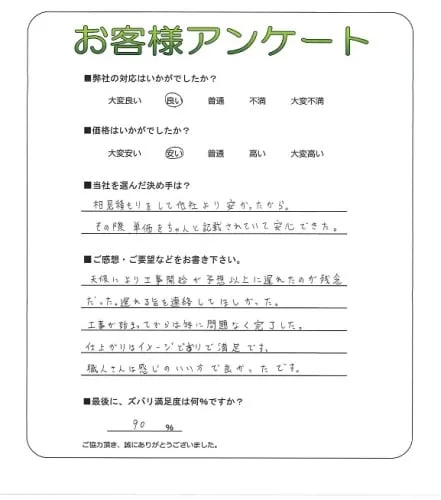 お客様アンケート
■弊社の対応はいかがでしたか？
大変良い 良い 普通 不満 大変不満
■価格はいかがでしたか？
大変安い 安い 普通 高い 大変高い
■当社を選んだ決め手は？
相見積もりをして他社より安かったから。
その際、単価をちゃんと記載されていて安心できた。
■ご感想・ご要望などをお書き下さい。
天候により工事開始が予想以上に遅れたのが残念
だった。遅れる旨を連絡してほしかった。
工事が始まってからは特に問題なく完了した。
仕上がりはイメージ通りで満足です。
職人さんは感じのいい方で良かったです。
■最後に、ズバリ満足度は何％ですか？
90 ％
ご協力頂き、誠にありがとうございました。